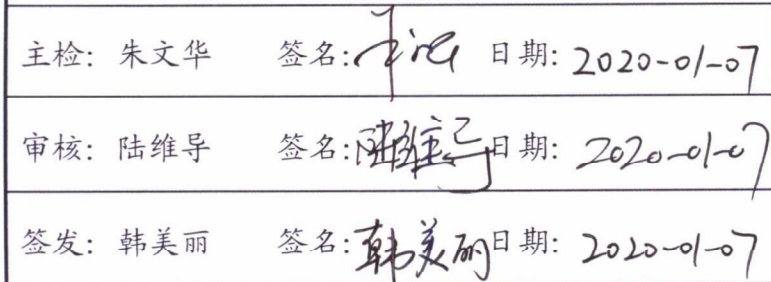 主检: 朱文华 签名: 日期: 2020-01-07
审核: 陆维导 签名: 陆维导 日期: 2020-01-07
签发: 韩美丽 签名: 韩美丽 日期: 2020-01-07